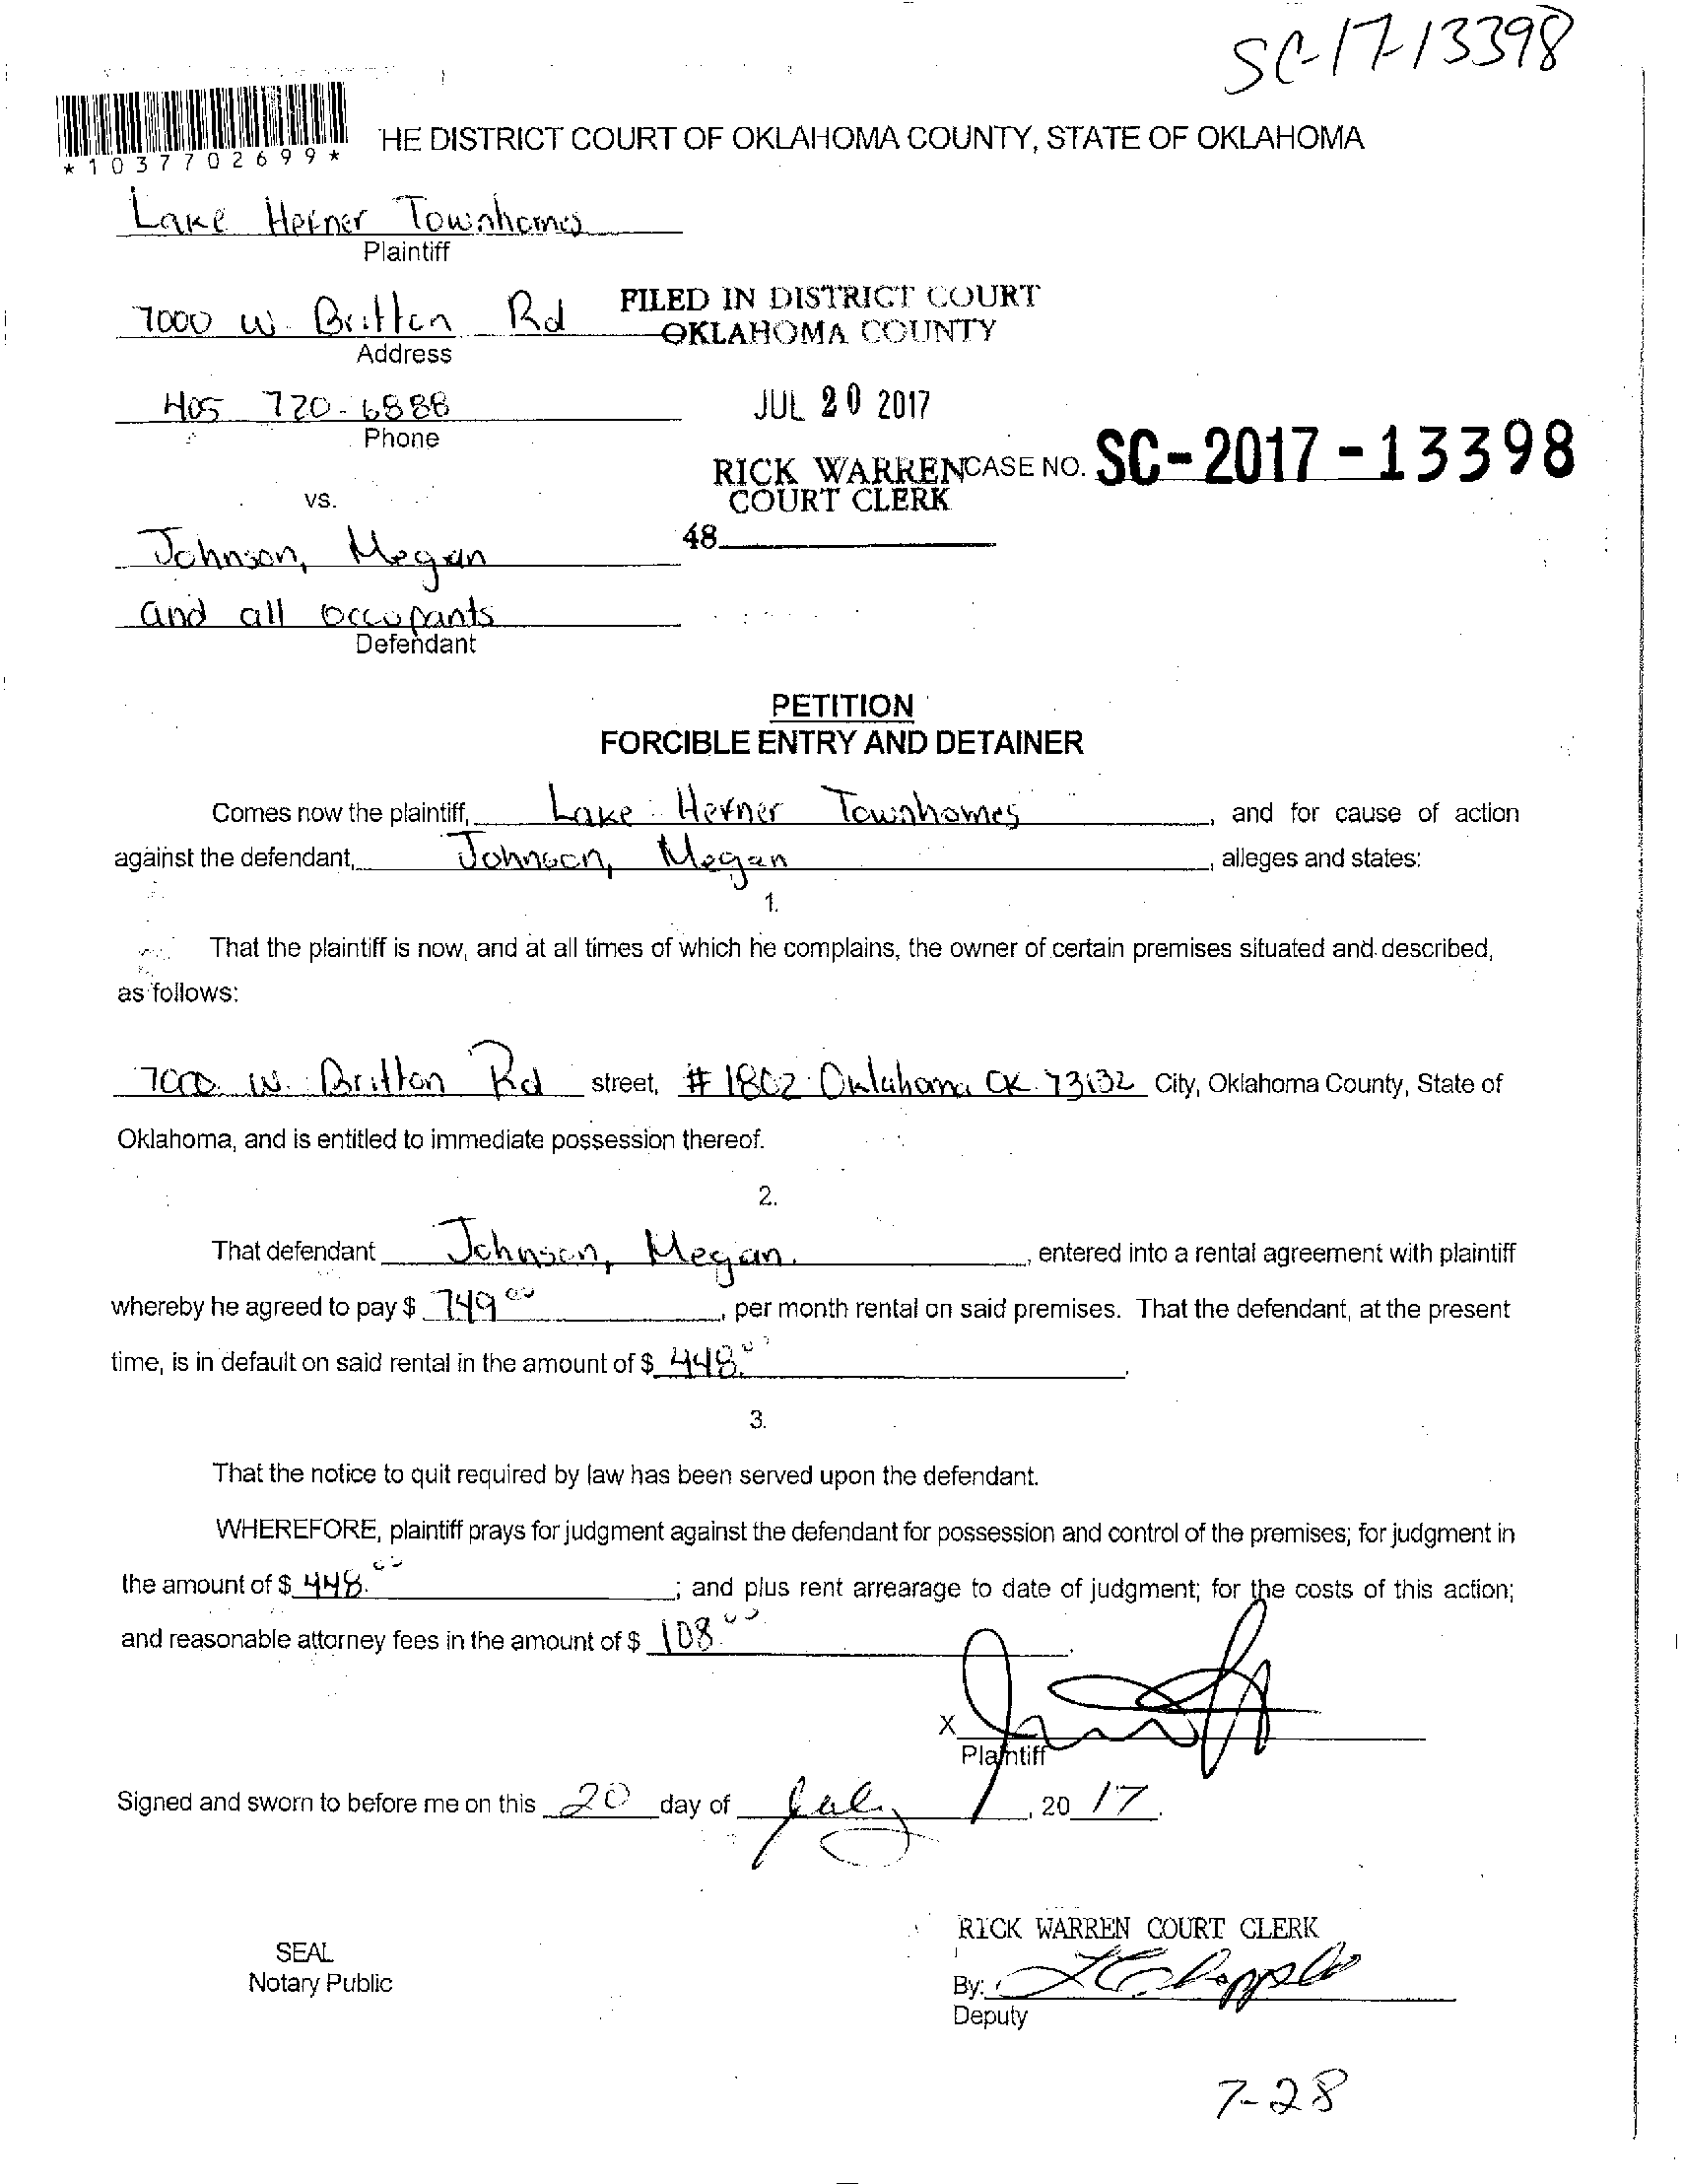 SC-17-13398
*1037702699*
HE DISTRICT COURT OF OKLAHOMA COUNTY, STATE OF OKLAHOMA
Lake Hefner Townhomes
Plaintiff
7000 W. Britton Rd
Address
FILED IN DISTRICT COURT
OKLAHOMA COUNTY
405 720-6888
Phone
JUL 20 2017
RICK WARREN
COURT CLERK
CASE NO. SC-2017-13398
48
vs.
Johnson, Megan
and all occupants
Defendant
PETITION
FORCIBLE ENTRY AND DETAINER
Comes now the plaintiff, Lake Hefner Townhomes, and for cause of action
against the defendant, Johnson, Megan, alleges and states:
1.
That the plaintiff is now, and at all times of which he complains, the owner of certain premises situated and described,
as follows:
7000 W. Britton Rd street, # 1802 Oklahoma OK 73132 City, Oklahoma County, State of
Oklahoma, and is entitled to immediate possession thereof.
2.
That defendant Johnson, Megan, entered into a rental agreement with plaintiff
whereby he agreed to pay $ 749.00, per month rental on said premises. That the defendant, at the present
time, is in default on said rental in the amount of $ 448.00.
3.
That the notice to quit required by law has been served upon the defendant.
WHEREFORE, plaintiff prays for judgment against the defendant for possession and control of the premises; for judgment in
the amount of $ 448.00; and plus rent arrearage to date of judgment; for the costs of this action;
and reasonable attorney fees in the amount of $ 108.00.
X
Plaintiff
Signed and sworn to before me on this 20 day of July, 20 17.
SEAL
Notary Public
RICK WARREN COURT CLERK
By:
Deputy
7-28